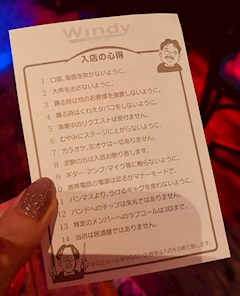 Windy
入店の心得
1 口笛、指笛を吹かないように。
2 大声を出さないように。
3 踊る時は他のお客様を強要しないように。
4 踊る時はくわえタバコをしないように。
5 演奏中のリクエストは受けません。
6 むやみにステージに上がらないように。
7 カラオケ、生オケは一切ありません。
8 泥酔の方は入店お断り致します。
9 ギター アンプ・マイク等に触らないように。
10 携帯電話の電源は切るかマナーモードで。
11 バンマスより、うけるギャグを言わないように。
12 バンドへのチップは失礼ではありません。
13 特定のメンバーへのラブコールは3回まで。
14 当店は居酒屋ではありません。
入店お断り致します。